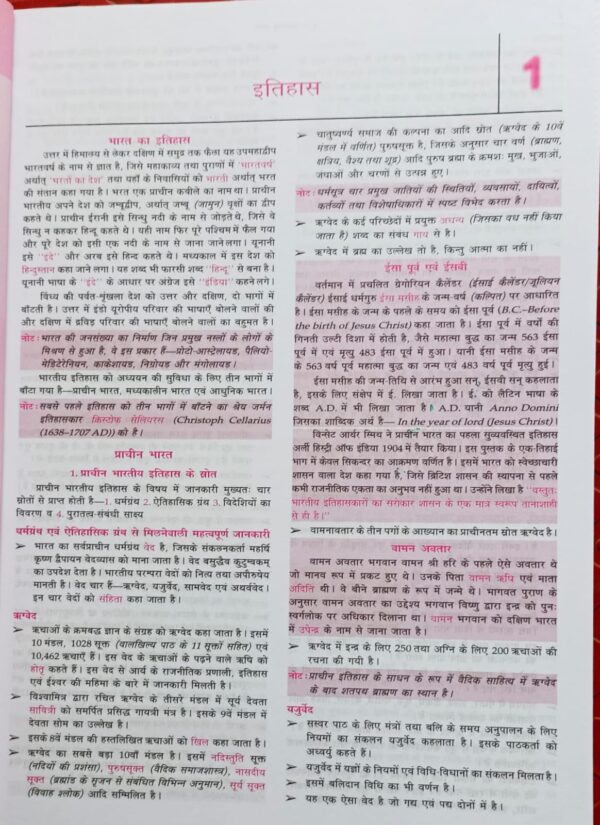 इतिहास
1
भारत का इतिहास
उत्तर में हिमालय से लेकर दक्षिण में समुद्र तक फैला यह उपमहाद्वीप
भारतवर्ष के नाम से ज्ञात है, जिसे महाकाव्य तथा पुराणों में 'भारतवर्ष'
अर्थात् 'भरतों का देश' तथा यहाँ के निवासियों को भारती अर्थात् भरत
की संतान कहा गया है। भरत एक प्राचीन कबीले का नाम था। प्राचीन
भारतीय अपने देश को जम्बूद्वीप, अर्थात् जम्बू (जामुन) वृक्षों का द्वीप
कहते थे। प्राचीन ईरानी इसे सिन्धु नदी के नाम से जोड़ते थे, जिसे वे
सिन्धु न कहकर हिन्दू कहते थे। यही नाम फिर पूरे पश्चिम में फैल गया
और पूरे देश को इसी एक नदी के नाम से जाना जाने लगा। यूनानी
इसे "इंदे" और अरब इसे हिन्द कहते थे। मध्यकाल में इस देश को
हिन्दुस्तान कहा जाने लगा। यह शब्द भी फारसी शब्द "हिन्दू" से बना है।
यूनानी भाषा के "इंदे" के आधार पर अंग्रेज इसे "इंडिया" कहने लगे।
विंध्य की पर्वत-शृंखला देश को उत्तर और दक्षिण, दो भागों में
बाँटती है। उत्तर में इंडो यूरोपीय परिवार की भाषाएँ बोलने वालों की
और दक्षिण में द्रविड़ परिवार की भाषाएँ बोलने वालों का बहुमत है।
नोट: भारत की जनसंख्या का निर्माण जिन प्रमुख नस्लों के लोगों के
मिश्रण से हुआ है, वे इस प्रकार हैं—प्रोटो-आस्ट्रेलायड, पैलियो-
मेडिटेरेनियन, काकेशायड, निग्रोयड और मंगोलायड।
भारतीय इतिहास को अध्ययन की सुविधा के लिए तीन भागों में
बाँटा गया है—प्राचीन भारत, मध्यकालीन भारत एवं आधुनिक भारत।
नोट: सबसे पहले इतिहास को तीन भागों में बाँटने का श्रेय जर्मन
इतिहासकार क्रिस्टोफ सेलियरस (Christoph Cellarius
(1638–1707 AD)) को है।
प्राचीन भारत
1. प्राचीन भारतीय इतिहास के स्रोत
प्राचीन भारतीय इतिहास के विषय में जानकारी मुख्यतः चार
स्रोतों से प्राप्त होती है—1. धर्मग्रंथ 2. ऐतिहासिक ग्रंथ 3. विदेशियों का
विवरण व 4. पुरातत्व-संबंधी साक्ष्य
धर्मग्रंथ एवं ऐतिहासिक ग्रंथ से मिलनेवाली महत्वपूर्ण जानकारी
➢ भारत का सर्वप्राचीन धर्मग्रंथ वेद है, जिसके संकलनकर्ता महर्षि
कृष्ण द्वैपायन वेदव्यास को माना जाता है। वेद बसुद्वैव कुटुम्बकम्
का उपदेश देता है। भारतीय परम्परा वेदों को नित्य तथा अपौरुषेय
मानती है। वेद चार हैं—ऋग्वेद, यजुर्वेद, सामवेद एवं अथर्ववेद।
इन चार वेदों को संहिता कहा जाता है।
ऋग्वेद
➢ ऋचाओं के क्रमबद्ध ज्ञान के संग्रह को ऋग्वेद कहा जाता है। इसमें
10 मंडल, 1028 सूक्त (वालखिल्य पाठ के 11 सूक्तों सहित) एवं
10,462 ऋचाएँ हैं। इस वेद के ऋचाओं के पढ़ने वाले ऋषि को
होतृ कहते हैं। इस वेद से आर्य के राजनीतिक प्रणाली, इतिहास
एवं ईश्वर की महिमा के बारे में जानकारी मिलती है।
➢ विश्वामित्र द्वारा रचित ऋग्वेद के तीसरे मंडल में सूर्य देवता
सावित्री को समर्पित प्रसिद्ध गायत्री मंत्र है। इसके 9वें मंडल में
देवता सोम का उल्लेख है।
➢ इसके 8वें मंडल की हस्तलिखित ऋचाओं को खिल कहा जाता है।
➢ ऋग्वेद का सबसे बड़ा 10वाँ मंडल है। इसमें नदिस्तुति सूक्त
(नदियों की प्रशंसा), पुरुषसूक्त (वैदिक समाजशास्त्र), नासदीय
सूक्त (ब्रह्मांड के सृजन से संबंधित विभिन्न अनुमान), सूर्य सूक्त
(विवाह श्लोक) आदि सम्मिलित है।
➢ चातुष्वर्ण्य समाज की कल्पना का आदि स्रोत (ऋग्वेद के 10वें
मंडल में वर्णित) पुरुषसूक्त है, जिसके अनुसार चार वर्ण (ब्राह्मण,
क्षत्रिय, वैश्य तथा शूद्र) आदि पुरुष ब्रह्मा के क्रमशः मुख, भुजाओं,
जंघाओं और चरणों से उत्पन्न हुए।
नोट: धर्मसूत्र चार प्रमुख जातियों की स्थितियों, व्यवसायों, दायित्वों,
कर्तव्यों तथा विशेषाधिकारों में स्पष्ट विभेद करता है।
➢ ऋग्वेद के कई परिच्छेदों में प्रयुक्त अघन्य (जिसका वध नहीं किया
जाता है) शब्द का संबंध गाय से है।
➢ ऋग्वेद में ब्रह्म का उल्लेख तो है, किन्तु आत्मा का नहीं।
ईसा पूर्व एवं ईसवी
वर्तमान में प्रचलित ग्रेगोरियन कैलेंडर (ईसाई कैलेंडर/जूलियन
कैलेंडर) ईसाई धर्मगुरु ईसा मसीह के जन्म-वर्ष (कल्पित) पर आधारित
है। ईसा मसीह के जन्म के पहले के समय को ईसा पूर्व (B.C.–Before
the birth of Jesus Christ) कहा जाता है। ईसा पूर्व में वर्षों की
गिनती उल्टी दिशा में होती है, जैसे महात्मा बुद्ध का जन्म 563 ईसा
पूर्व में एवं मृत्यु 483 ईसा पूर्व में हुआ। यानी ईसा मसीह के जन्म
के 563 वर्ष पूर्व महात्मा बुद्ध का जन्म एवं 483 वर्ष पूर्व मृत्यु हुई।
ईसा मसीह की जन्म तिथि से आरंभ हुआ सन्, ईसवी सन् कहलाता
है, इसके लिए संक्षेप में ई. लिखा जाता है। ई. को लैटिन भाषा के
शब्द A.D. में भी लिखा जाता है। A.D. यानी Anno Domini
जिसका शाब्दिक अर्थ है— In the year of lord (Jesus Christ)।
विन्सेट आर्थर स्मिथ ने प्राचीन भारत का पहला सुव्यवस्थित इतिहास
अर्ली हिस्ट्री ऑफ इंडिया 1904 में तैयार किया। इस पुस्तक के एक-तिहाई
भाग में केवल सिकन्दर का आक्रमण वर्णित है। इसमें भारत को स्वेच्छाचारी
शासन वाला देश कहा गया है, जिसे ब्रिटिश शासन की स्थापना से पहले
कभी राजनीतिक एकता का अनुभव नहीं हुआ था। उन्होंने लिखा है "वस्तुतः
भारतीय इतिहासकारों का सरोकार शासन के एक मात्र स्वरूप तानाशाही
से ही है।"
➢ वामनावतार के तीन पगों के आख्यान का प्राचीनतम स्रोत ऋग्वेद है।
वामन अवतार
वामन अवतार भगवान वामन श्री हरि के पहले ऐसे अवतार थे
जो मानव रूप में प्रकट हुए थे। उनके पिता वामन ऋषि एवं माता
अदिति थी। वे बौने ब्राह्मण के रूप में जन्मे थे। भागवत पुराण के
अनुसार वामन अवतार का उद्देश्य भगवान विष्णु द्वारा इन्द्र को पुनः
स्वर्गलोक पर अधिकार दिलाना था। वामन भगवान को दक्षिण भारत
में उपेन्द्र के नाम से जाना जाता है।
➢ ऋग्वेद में इन्द्र के लिए 250 तथा अग्नि के लिए 200 ऋचाओं की
रचना की गयी है।
नोट: प्राचीन इतिहास के साधन के रूप में वैदिक साहित्य में ऋग्वेद
के बाद शतपथ ब्राह्मण का स्थान है।
यजुर्वेद
➢ सस्वर पाठ के लिए मंत्रों तथा बलि के समय अनुपालन के लिए
नियमों का संकलन यजुर्वेद कहलाता है। इसके पाठकर्ता को
अध्वर्यु कहते हैं।
➢ यजुर्वेद में यज्ञों के नियमों एवं विधि-विधानों का संकलन मिलता है।
➢ इसमें बलिदान विधि का भी वर्णन है।
➢ यह एक ऐसा वेद है जो गद्य एवं पद्य दोनों में है।